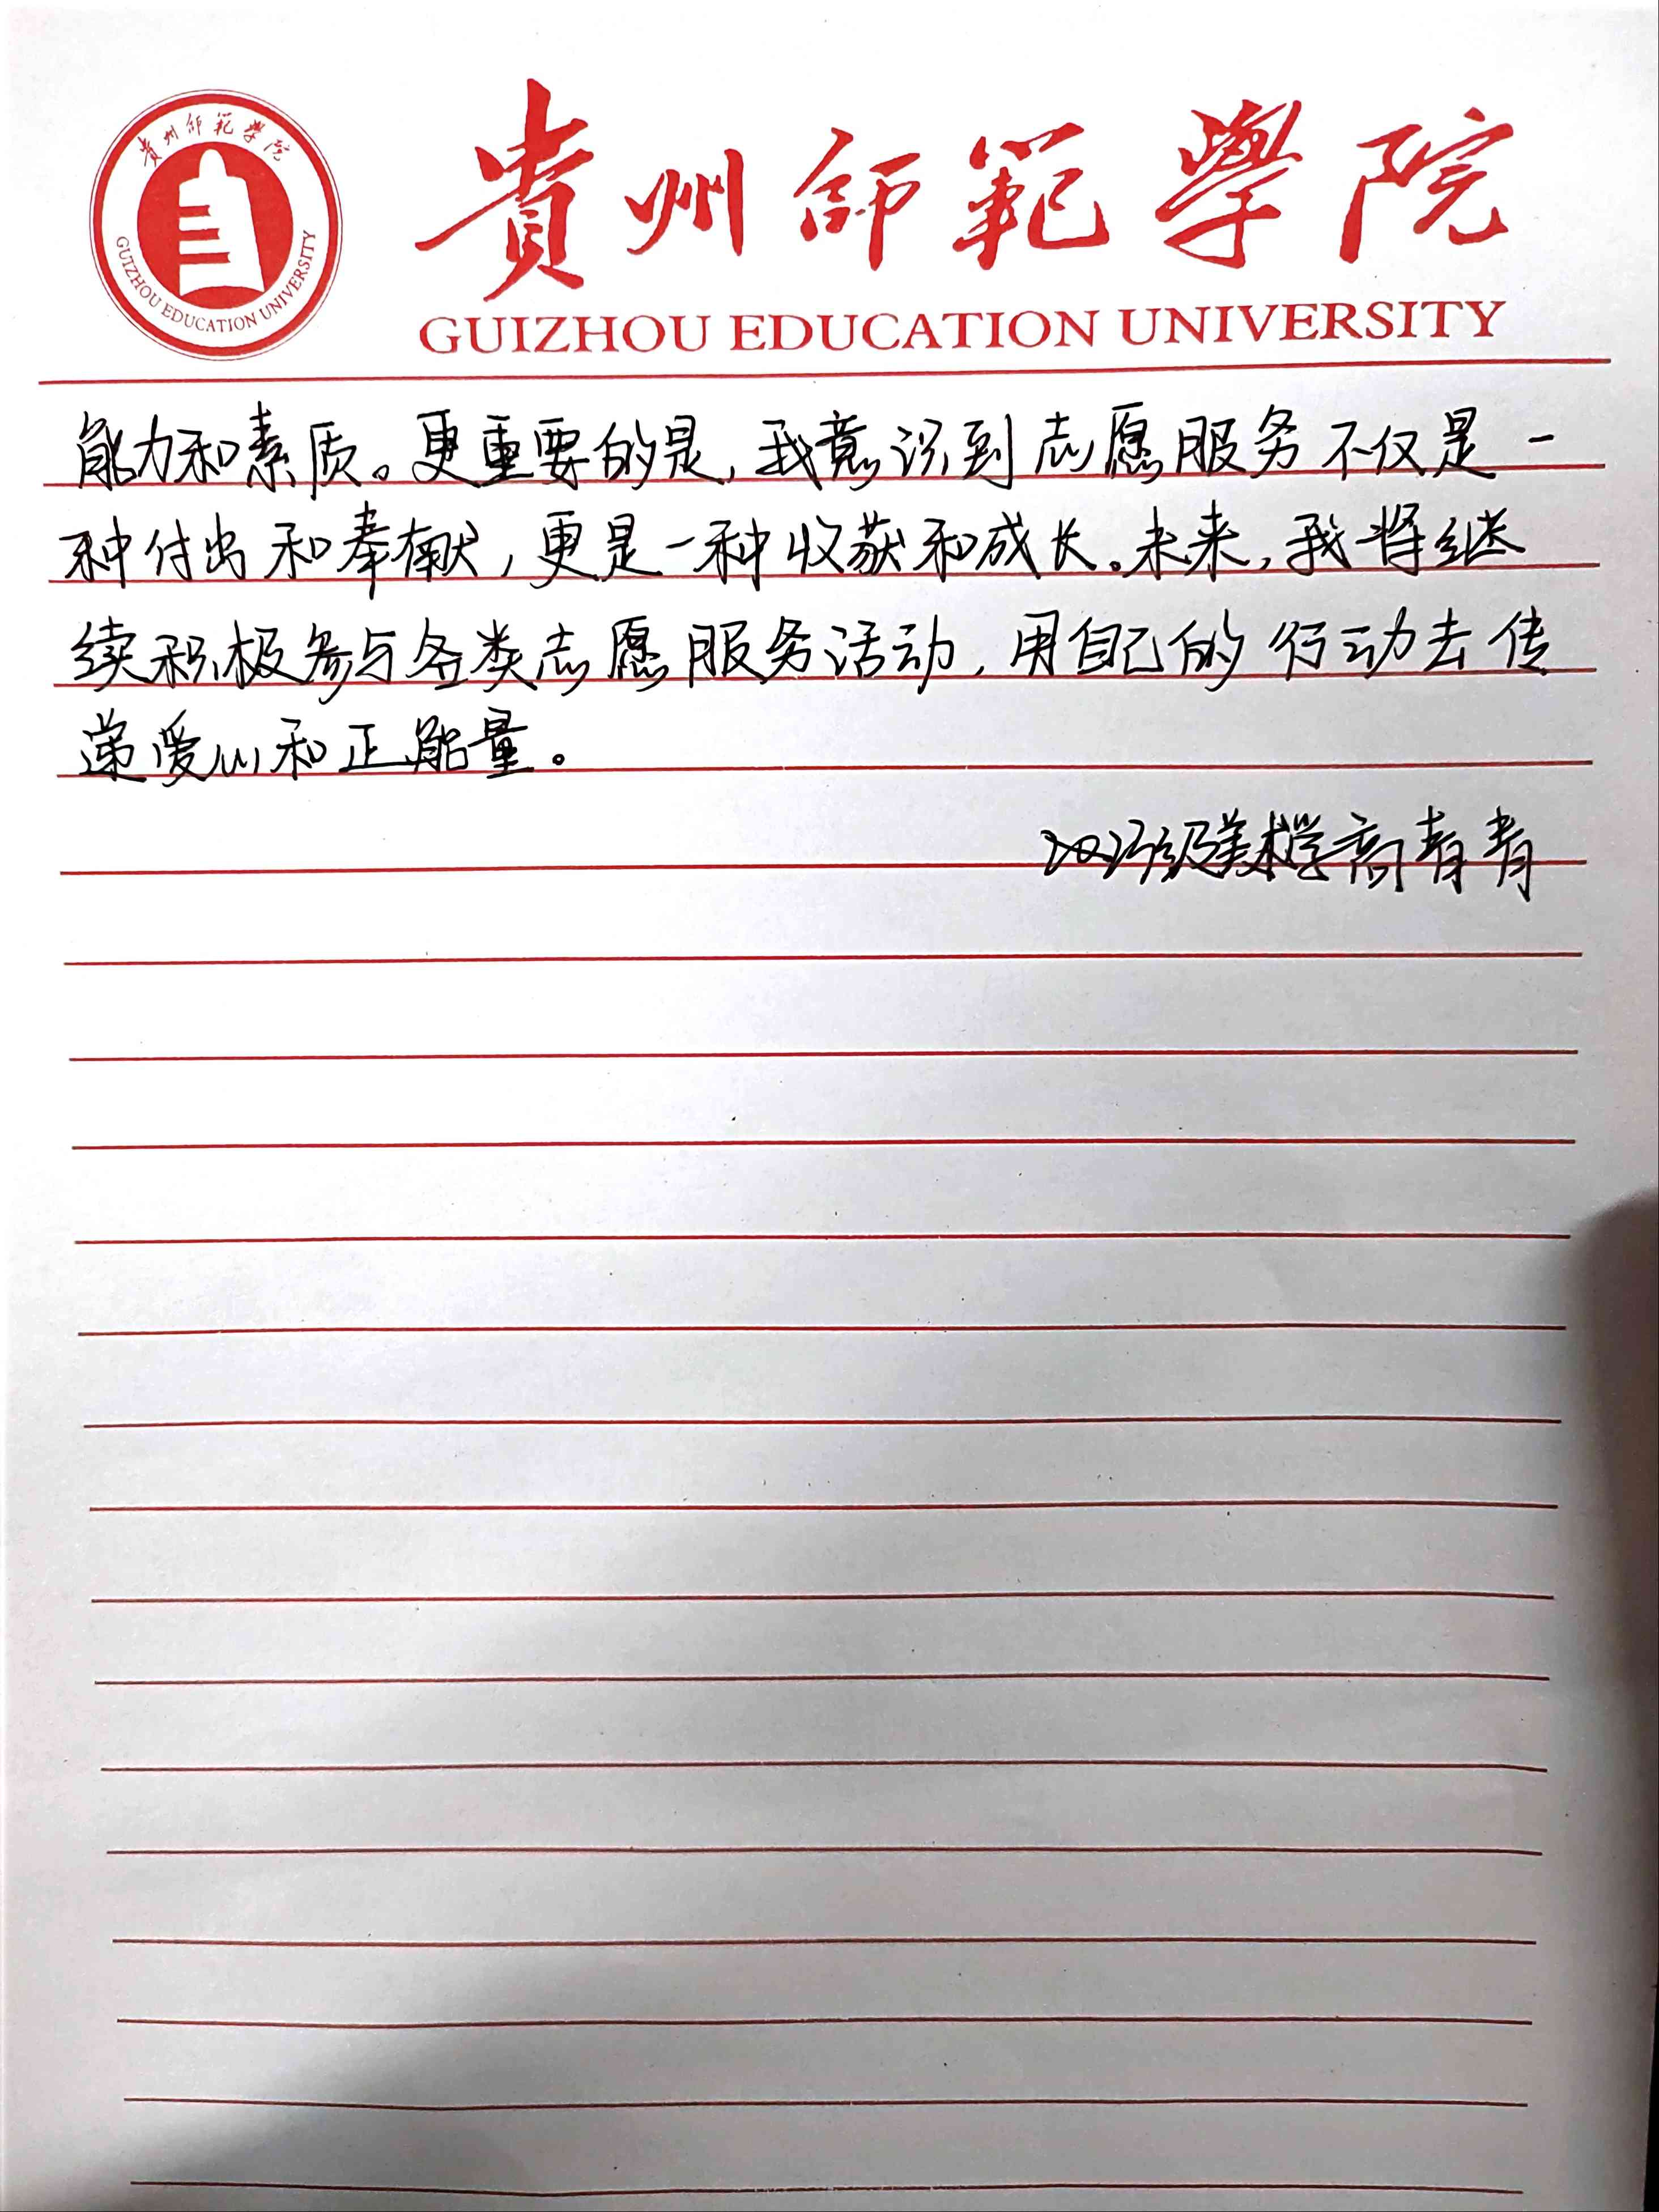 貴州師範學院
GUIZHOU EDUCATION UNIVERSITY
貴州師範學院
GUIZHOU EDUCATION UNIVERSITY
能力和素质。更重要的是,我意识到志愿服务不仅是一
种付出和奉献,更是一种收获和成长。未来,我将继
续积极参与各类志愿服务活动,用自己的行动去传
递爱心和正能量。
级美术学高青青